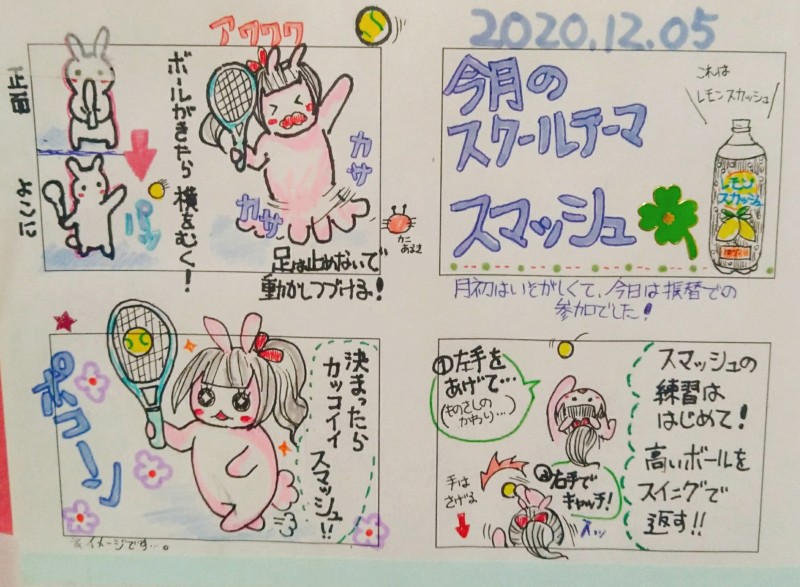 2020.12.05
今月の
スクールテーマ
スマッシュ
これは
レモンスカッシュ
レモン
スカッシュ
月初はいそがしくて、今日は振替での
参加でした!
スマッシュの
練習は
はじめて!
高いボールを
スイングで
返す!!
①左手を
あげて…
(ものさしの
かわり…)
②右手で
キャッチ!
手は
さげる
アワワワ
ボールがきたら横をむく!
正面
よこに
パッ
カサ
カサ
カニ
あるき
足は止めないで
動かしつづける!
決まったら
カッコイイ
スマッシュ!!
ポコーン
※イメージです…。